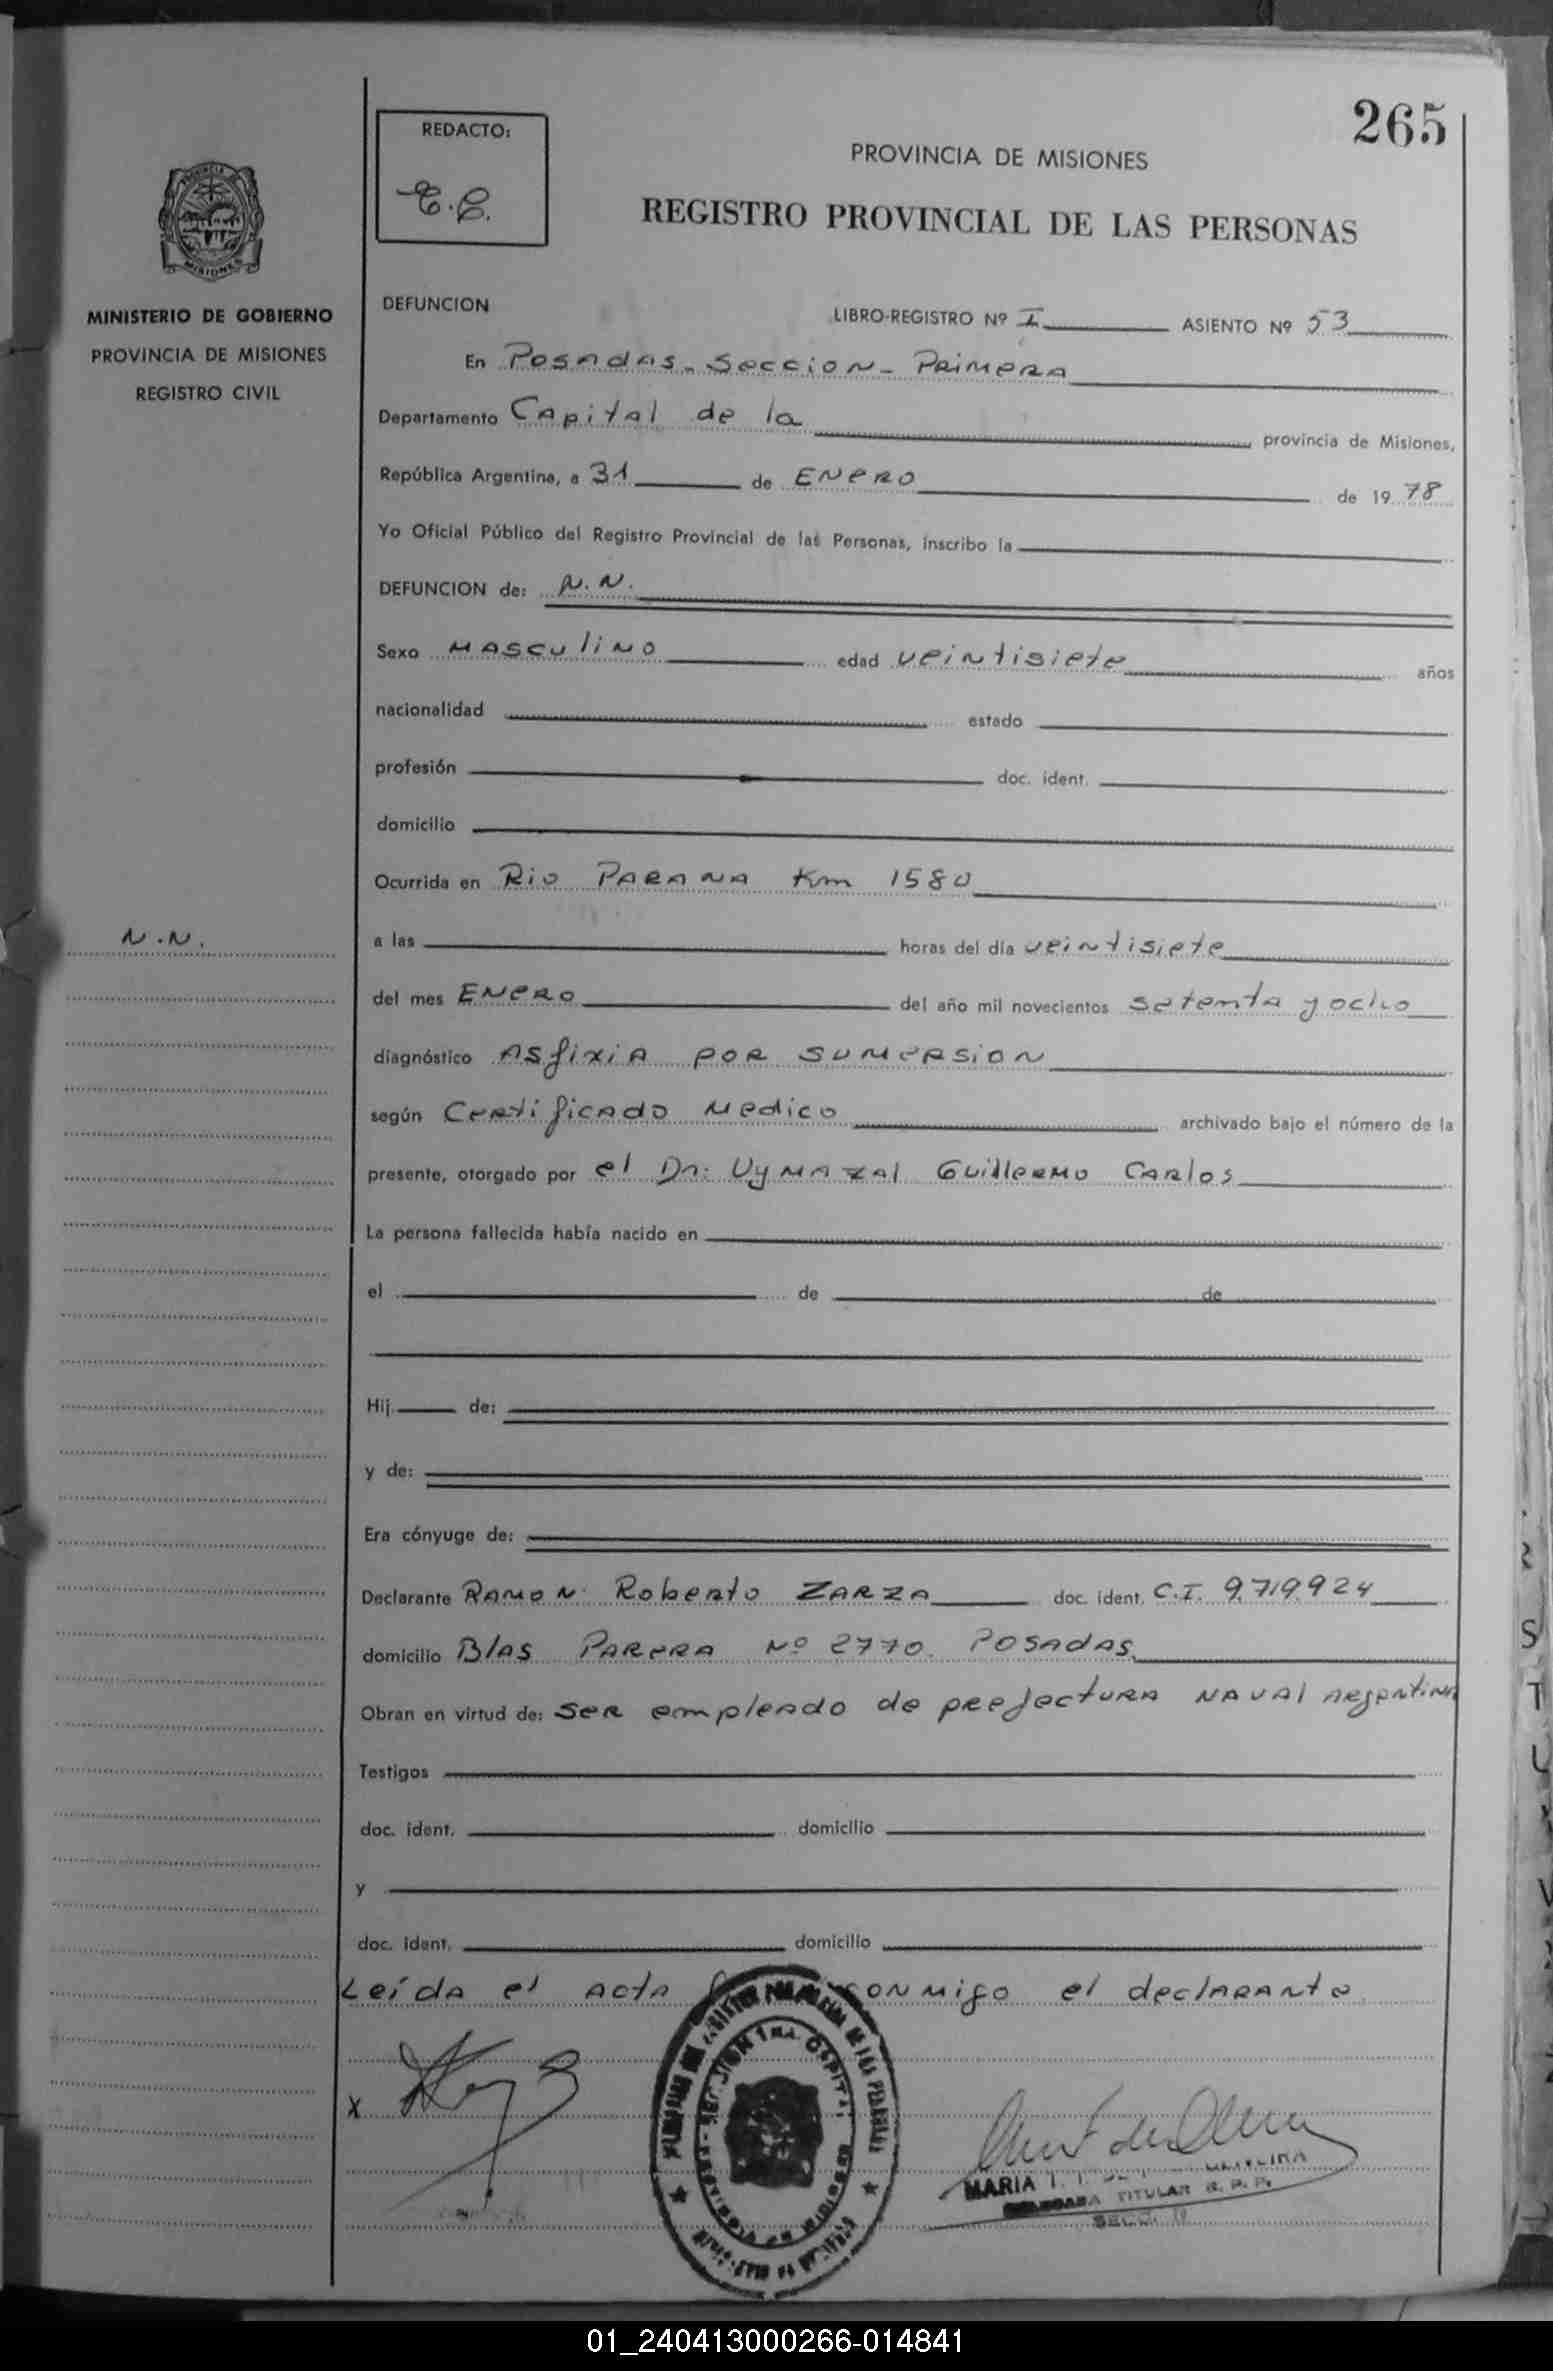 265
REDACTO:
E.C.
PROVINCIA DE MISIONES
REGISTRO PROVINCIAL DE LAS PERSONAS
MISIONES
MINISTERIO DE GOBIERNO
PROVINCIA DE MISIONES
REGISTRO CIVIL
DEFUNCION LIBRO-REGISTRO Nº I ASIENTO Nº 53
En Posadas - Seccion - Primera
Departamento Capital de la provincia de Misiones,
República Argentina, a 31 de Enero de 1978
Yo Oficial Público del Registro Provincial de las Personas, inscribo la
DEFUNCION de: N.N.
Sexo Masculino edad veintisiete años
nacionalidad estado
profesión doc. ident.
domicilio
Ocurrida en Rio Parana Km 1580
N.N.
a las horas del día veintisiete
del mes Enero del año mil novecientos setenta y ocho
diagnóstico Asfixia por sumersion
según Certificado Medico archivado bajo el número de la
presente, otorgado por el Dr: Vymazal Guillermo Carlos
La persona fallecida había nacido en
el de de
Hij de:
y de:
Era cónyuge de:
Declarante Ramon Roberto Zarza doc. ident. C.I. 9.719.924
domicilio Blas Parera Nº 2770. Posadas.
Obran en virtud de: ser empleado de preefectura naval argentina
Testigos
doc. ident. domicilio
y
doc. ident. domicilio
Leída el acta conmigo el declarante
X
MARIA
TITULAR R. P. P.
SECC.
01_240413000266-014841